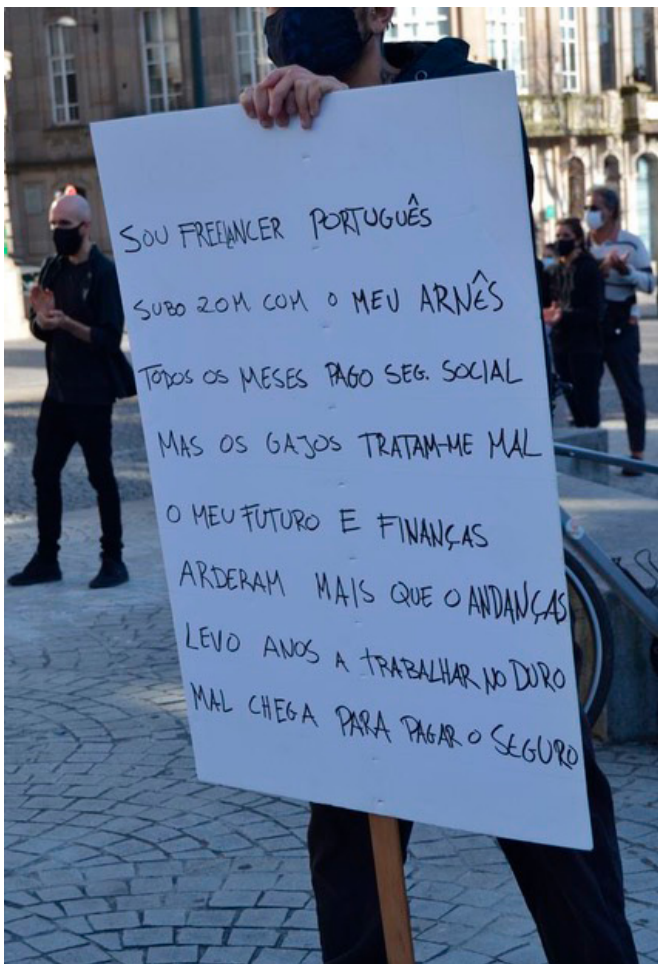 SOU FREELANCER PORTUGUÊS
SUBO 20M COM O MEU ARNÊS
TODOS OS MESES PAGO SEG. SOCIAL
MAS OS GAJOS TRATAM-ME MAL
O MEU FUTURO E FINANÇAS
ARDERAM MAIS QUE O ANDANÇAS
LEVO ANOS A TRABALHAR NO DURO
MAL CHEGA PARA PAGAR O SEGURO